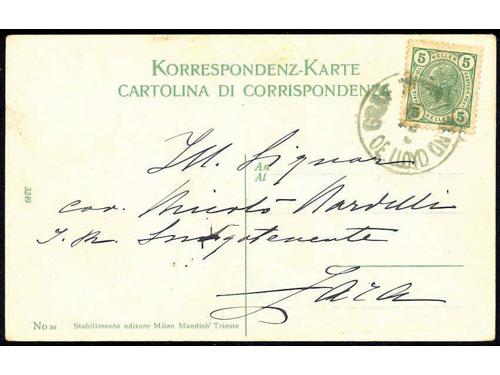 KORRESPONDENZ-KARTE
CARTOLINA DI CORRISPONDENZA
5 HELLER 5
5 HELLER 5
Ill. Signor
An
Al
cav. Nicolò Nardelli
I. R. Luogotenente
Zara
3249
No
Stabilimento editore Milan Mandich' Trieste